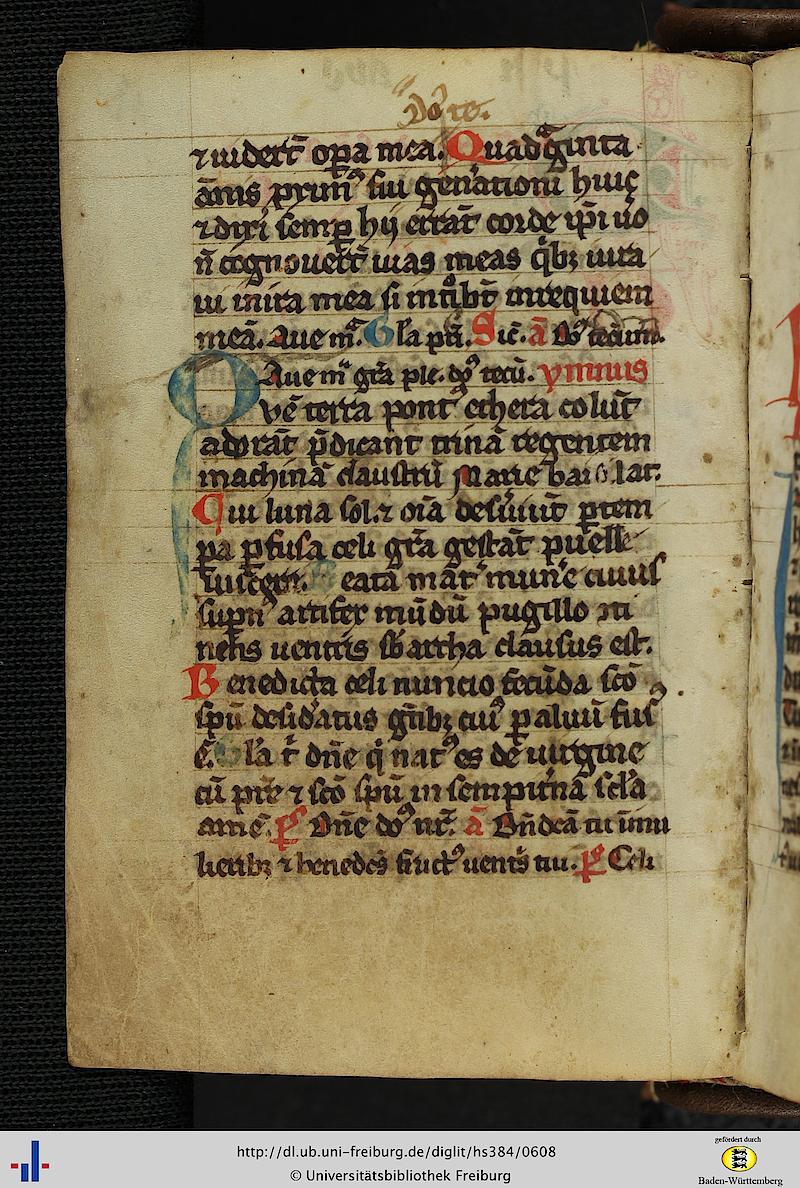 Do⁹ te.
⁊ viderūt opa mea. Quadᵃginta
ānis proxim⁹ fui gen̄ationi huic
⁊ dixi semp hij errāt corde ip̄i v̊o
n̄ cognoverūt vias meas q̇bȝ iura
vi in ira mea si int̊ibūt in requiem
meā. Aue m̄ᵃ. Gl̄a pr̄i. Sic̄. ā Do⁹ tecum.
Aue mᵃ gr̄a ple. do⁹ tecū. ymnus
Qvē terra pont⁹ ethera colūt
adorāt p̄dicant trinā regentem
machinā claustrū Marie baiolat.
Cui luna sol ⁊ oīa deserviūt p tem
pa p fusa celi gr̄a gestāt puelle
viscera. eata māt mune cuius
supn⁹ artifex mūdū pugillo 9ti
nens ventris sb̄ archa clausus est.
Benedicta celi nuncio fecūda sc̄o
spū desid̄atus gn̄tibȝ cui⁹ p aluū fus⁹
ē. Gl̄a t̄ dn̄e q̇ nat⁹ es de virgine
cū pr̄e ⁊ sc̄o spū in sempit̄nā sc̄l̄a
amē. p̄s Dn̄e do⁹ nr̄. ā Bn̄dcā tu ī mu
lieribȝ ⁊ benedcs̄ fruct⁹ ventrs̄ tui. p̄s Celi
http://dl.ub.uni-freiburg.de/diglit/hs384/0608
© Universitätsbibliothek Freiburg
gefördert durch
Baden-Württemberg